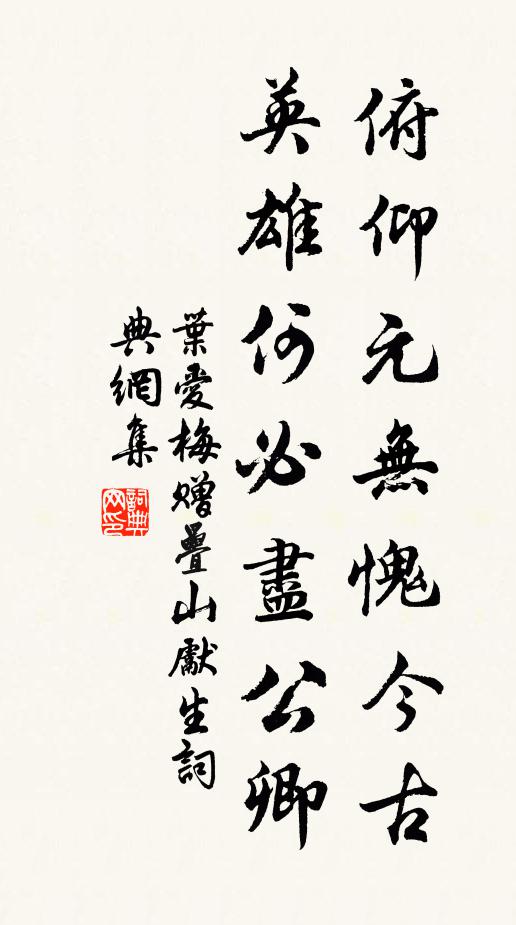 俯仰元無愧今古
英雄何必盡公卿
葉愛梅贈疊山獻生詞
典網集
詞典网印